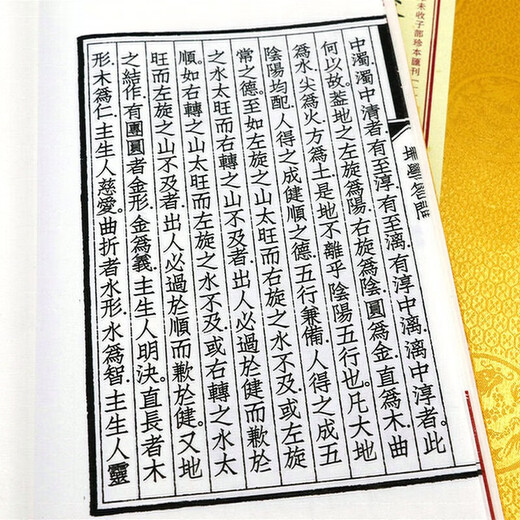 中濁。濁中清者。有至淳。有至漓。有淳中漓。漓中淳者。此
何以故。蓋地之左旋為陽。右旋為陰。圓為金。直為木。曲
為水。尖為火。方為土。是地不離乎陰陽五行也。凡大地
陰陽均配。人得之成健順之德。五行兼備。人得之成五
常之德。至如左旋之山太旺而右旋之水不及。或左旋
之水太旺而右轉之山不及者。出人必過於健而歉於
順。如右轉之山太旺而左旋之水不及。或右轉之水太
旺而左旋之山不及者。出人必過於順而歉於健。又地
之結作。有團圓者金形。金為義。主生人明決。直長者木
形。木為仁。主生人慈愛。曲折者水形。水為智。主生人靈
未收子部珍本匯刊